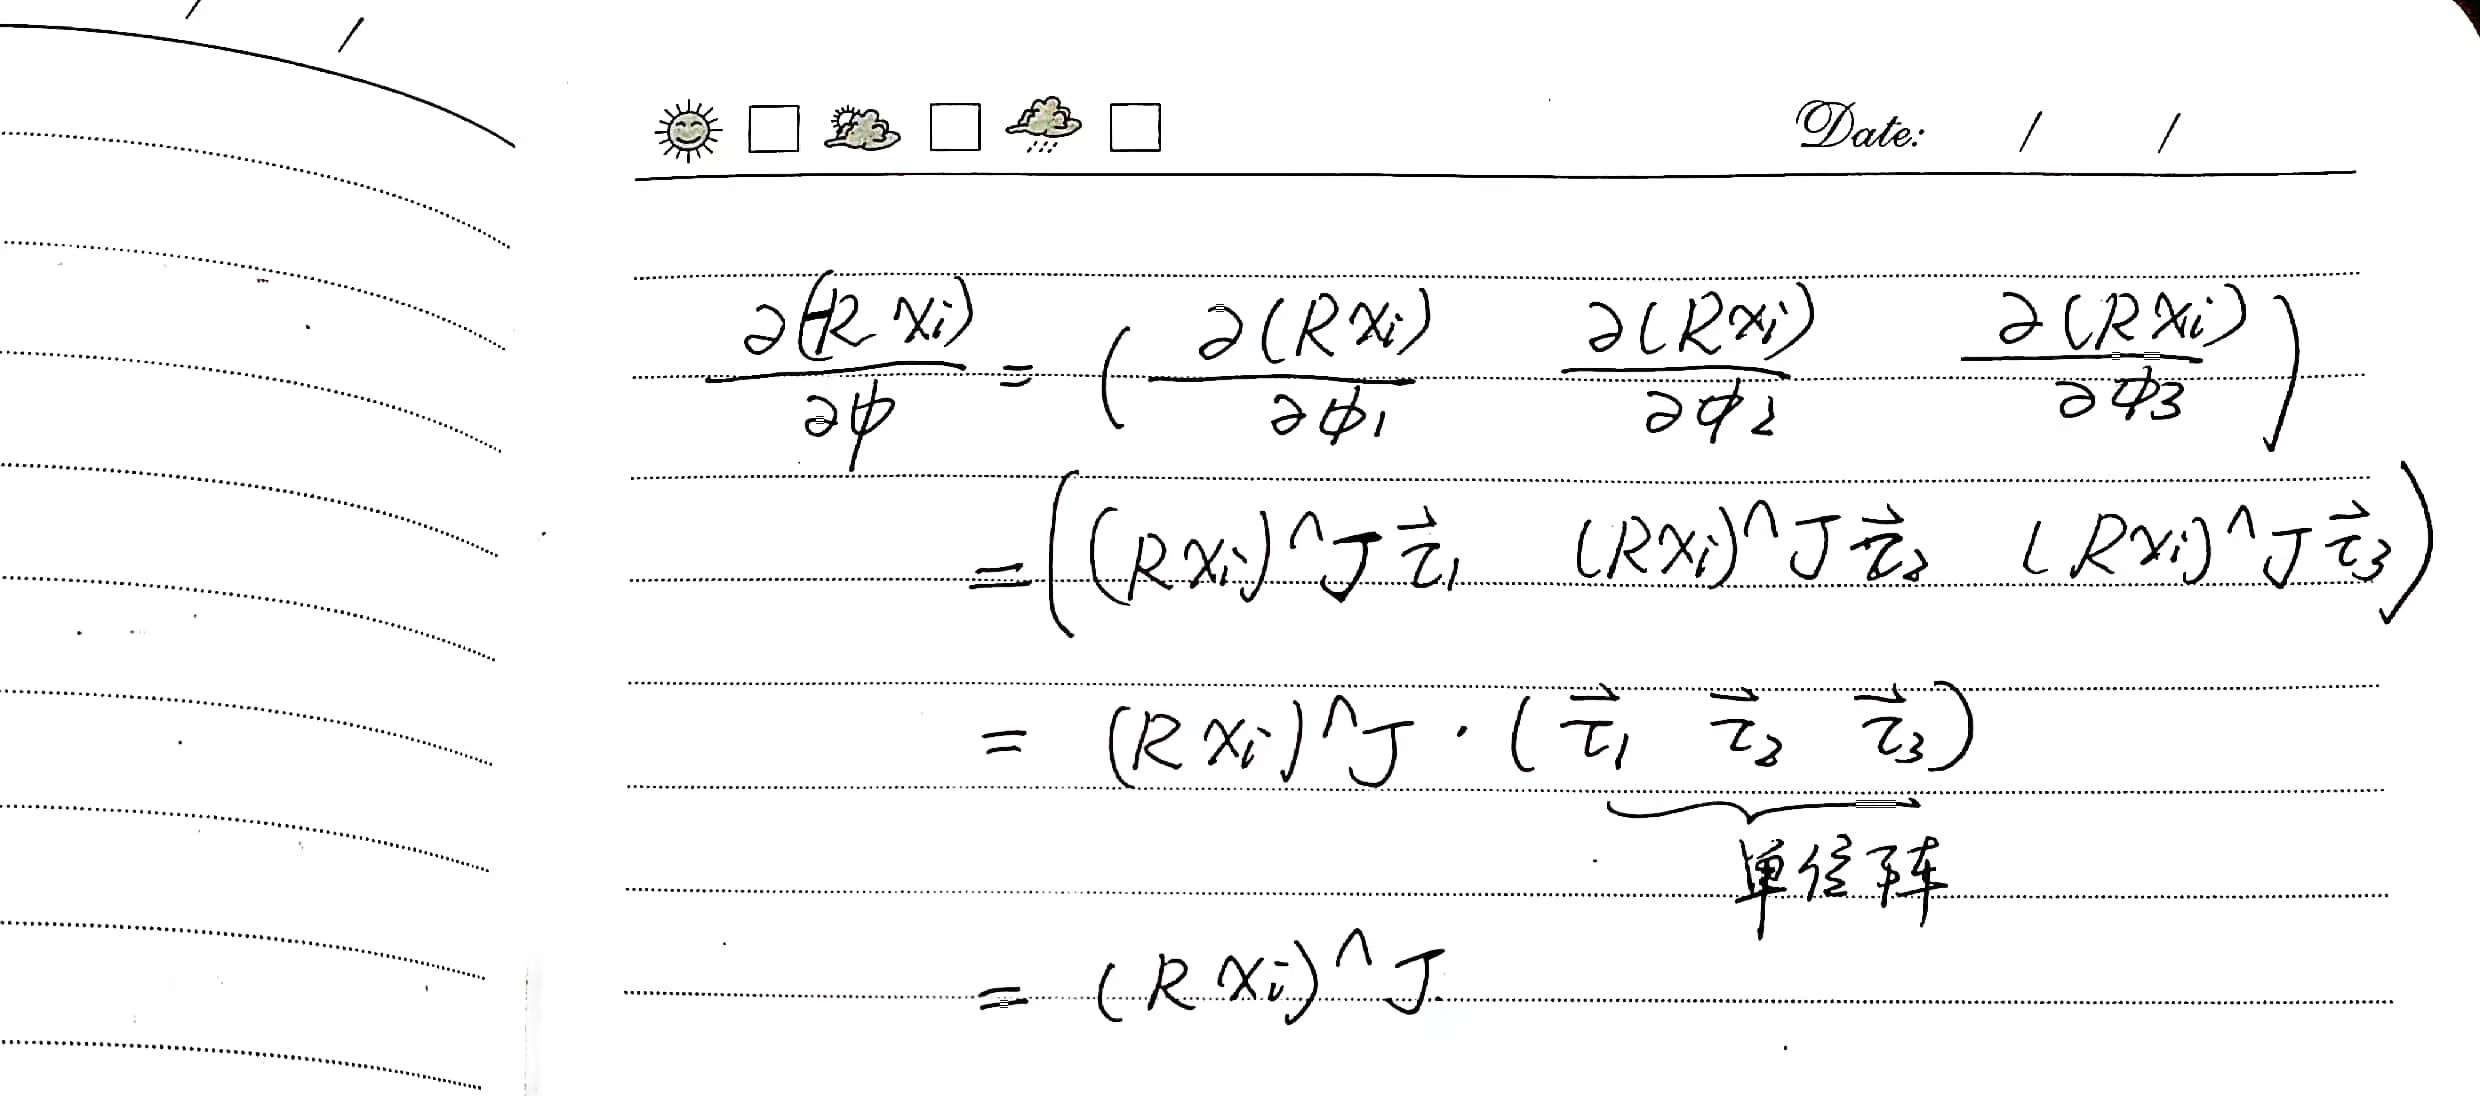 Date: / /
∂(R xi)/∂φ = ( ∂(R xi)/∂φ1 ∂(R xi)/∂φ2 ∂(R xi)/∂φ3 )
= ( (R xi)^ J τ⃗1 (R xi)^ J τ⃗2 (R xi)^ J τ⃗3 )
= (R xi)^ J · ( τ⃗1 τ⃗2 τ⃗3 )
单位阵
= (R xi)^ J.